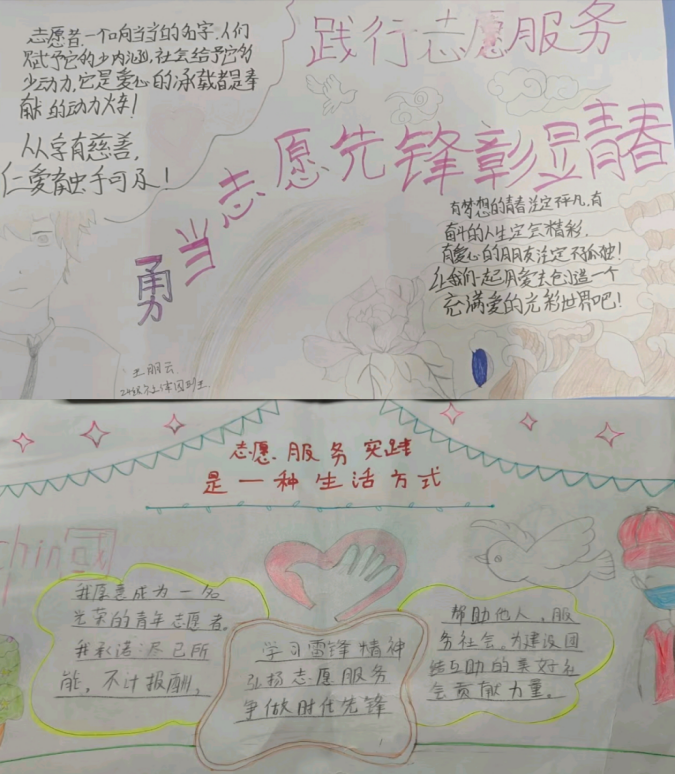 志愿者,一个响当当的名字.人们
赋予它多少内涵,社会给予它多
少动力,它是爱心的承载者是奉
献的动力火车!
从字有慈善,
仁爱触手可及!
践行志愿服务
勇当志愿先锋彰显青春
有梦想的青春注定不凡,有
奋斗的人生定会精彩,
有爱心的朋友注定不孤独!
让我们一起用爱去创造一个
充满爱的光彩世界吧!
王丽云
志愿服务实践
是一种生活方式
china
我愿意成为一名
光荣的青年志愿者。
我承诺:尽己所
能,不计报酬,
学习雷锋精神
弘扬志愿服务
争做时代先锋
帮助他人,服
务社会,为建设团
结互助的美好社
会贡献力量。